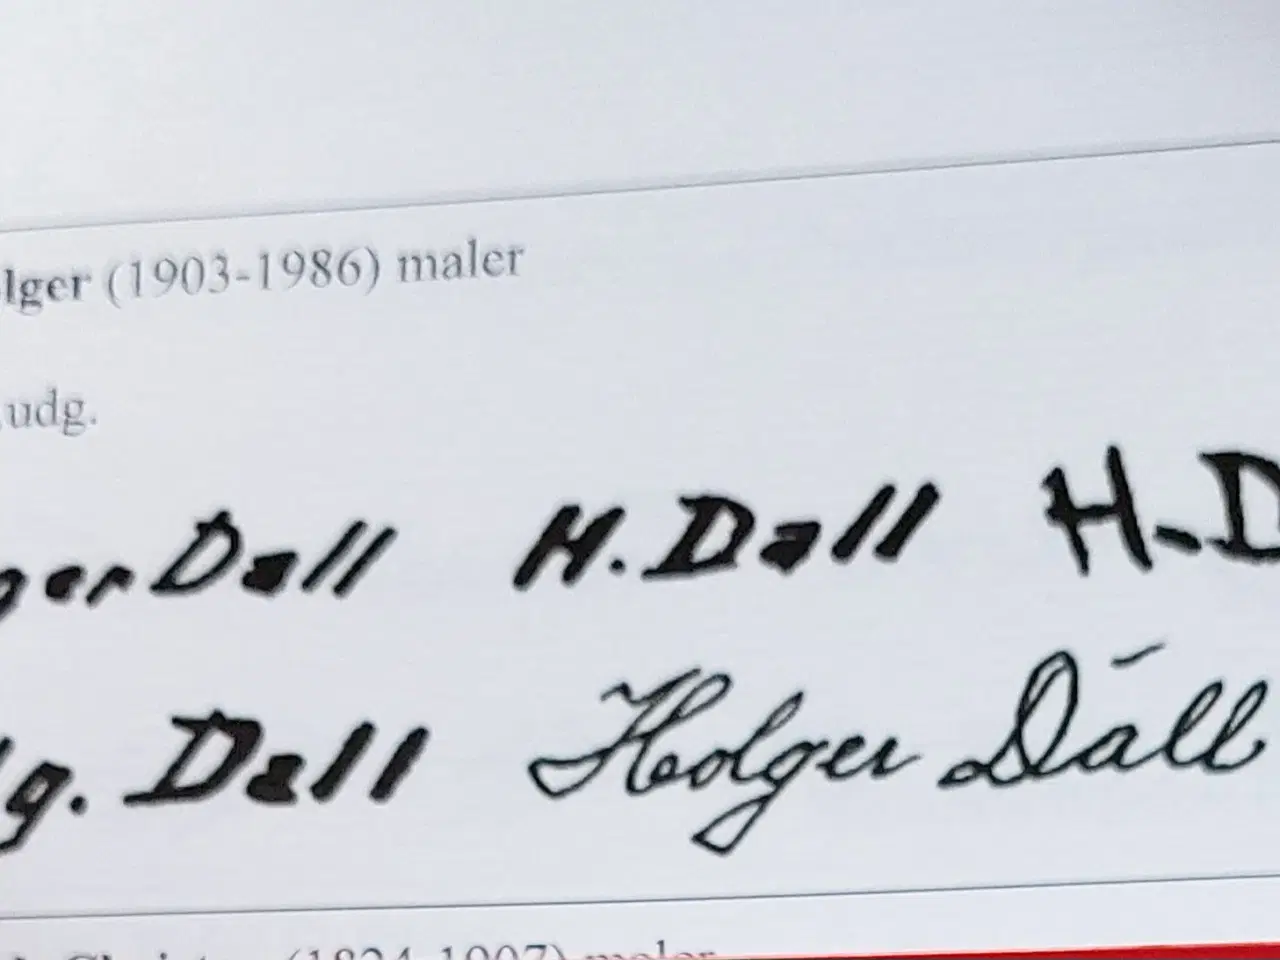 lger (1903-1986) maler
udg.
ger Dall H. Dall H. D
lg. Dall Holger Dall
(1824-1907) maler